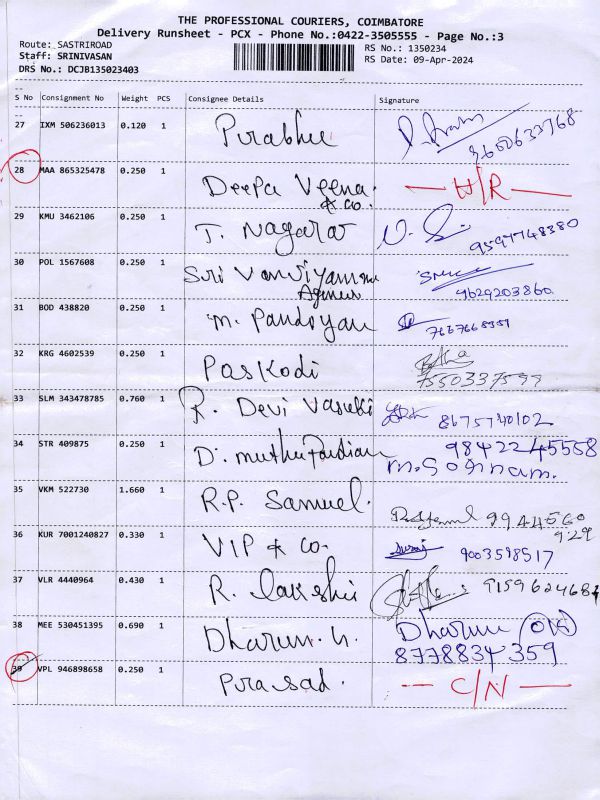 THE PROFESSIONAL COURIERS, COIMBATORE
Delivery Runsheet - PCX - Phone No.:0422-3505555 - Page No.:3
Route: SASTRIROAD RS No.: 1350234
Staff: SRINIVASAN RS Date: 09-Apr-2024
DRS No.: DCJB135023403
S No Consignment No Weight PCS Consignee Details Signature
27 IXM 506236013 0.120 1 Pirabhu
28 MAA 865325478 0.250 1 Deepa Veena & co. H/R
29 KMU 3462106 0.250 1 T. Nagara 9597748380
30 POL 1567608 0.250 1 Sri 9629203860
31 BOD 438820 0.250 1 M. Pandiyan
32 KRG 4602539 0.250 1 Paskodi 7550337599
33 SLM 343478785 0.760 1 R. Devi Vasuki 8675740102
34 STR 409875 0.250 1 D. muthu Pandian 9842245558
35 VKM 522730 1.660 1 R.P. Samuel. 9944560
929
36 KUR 7001240827 0.330 1 VIP & Co. 9003598517
37 VLR 4440964 0.430 1 R. lakshi 9159624684
38 MEE 530451395 0.690 1 Dharun. Dharun
8778834359
39 VPL 946898658 0.250 1 Pirasad. C/N